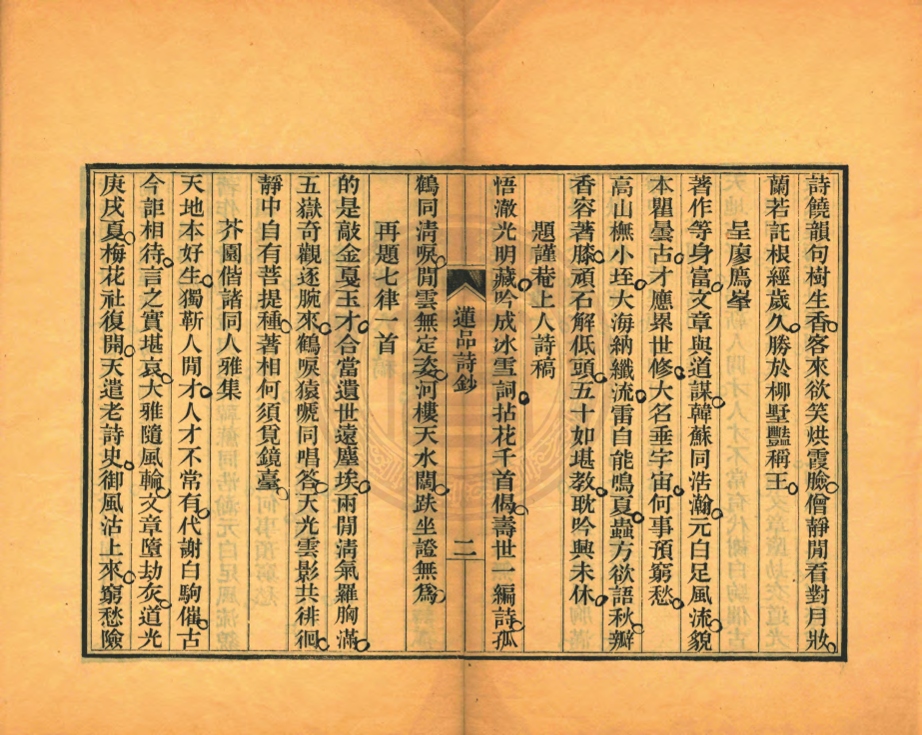 詩饒韻句樹生香客來欲笑烘霞臉僧靜閒看對月妝
蘭若託根經歲久勝於柳墅豔稱王
呈廖鴈峯
著作等身富文章與道謀韓蘇同浩瀚元白足風流貌
本瞿曇古才應累世修大名垂宇宙何事預窮愁
高山橅小垤大海納纖流雷自能鳴夏蟲方欲語秋瓣
香容著膝頑石解低頭五十如堪教耽吟興未休
題謹菴上人詩稿
悟澈光明藏吟成冰雪詞拈花千首偈壽世一編詩孤
蓮品詩鈔
二
鶴同清唳閒雲無定姿河樓天水闊趺坐證無為
再題七律一首
的是敲金戛玉才合當遺世遠塵埃兩閒清氣羅胸滿
五嶽奇觀逐腕來鶴唳猿嗁同唱答天光雲影共徘徊
靜中自有菩提種著相何須覓鏡臺
芥園偕諸同人雅集
天地本好生獨靳人閒才人才不常有代謝白駒催古
今詎相待言之實堪哀大雅隨風輪文章墮劫灰道光
庚戌夏梅花社復開天遣老詩史御風沽上來窮愁險